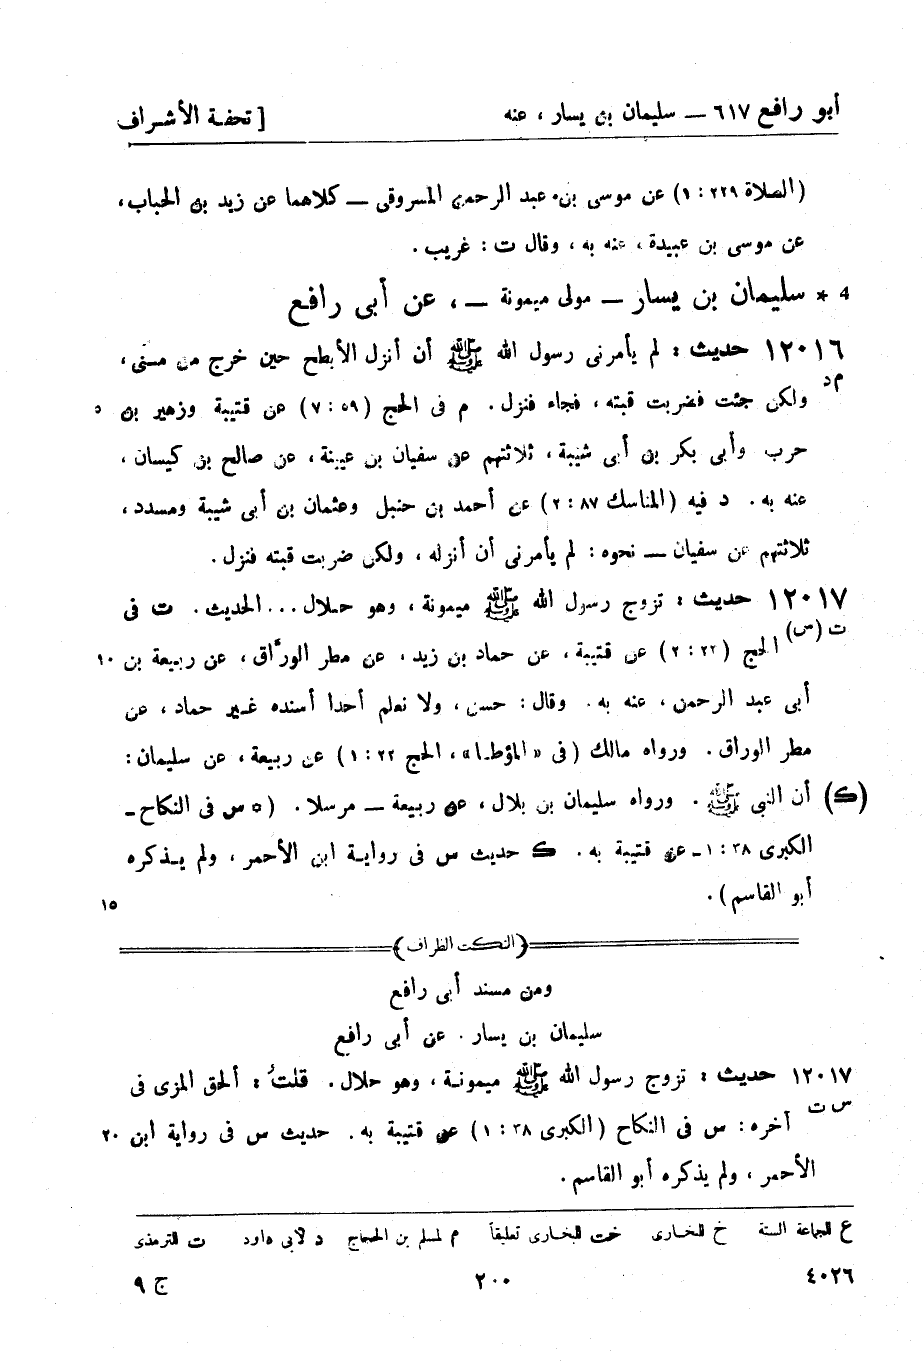 أبو رافع ٦١٧ — سليمان بن يسار ، عنه [ تحفة الأشراف
(الصلاة ٢٢٩ : ١) عن موسى بن عبد الرحمن المسروقى — كلاهما عن زيد بن الحباب ،
عن موسى بن عبيدة ، عنه به ، وقال ت : غريب .
4 * سليمان بن يسار — مولى ميمونة — ، عن أبى رافع
١٢٠١٦ حديث : لم يأمرنى رسول الله ﷺ أن أنزل الأبطح حين خرج من منى ،
م د ولكن جئت فضربت قبته ، فجاء فنزل . م فى الحج (٥٩ : ٧) عن قتيبة وزهير بن ٥
حرب وأبى بكر بن أبى شيبة ، ثلاثتهم عن سفيان بن عيينة ، عن صالح بن كيسان ،
عنه به . د فيه (المناسك ٨٧ : ٢) عن أحمد بن حنبل وعثمان بن أبى شيبة ومسدد ،
ثلاثتهم عن سفيان — نحوه : لم يأمرنى أن أنزله ، ولكن ضربت قبته فنزل .
١٢٠١٧ حديث : تزوج رسول الله ﷺ ميمونة ، وهو حلال ... الحديث . ت فى
ت (س) الحج (٢٣ : ٢) عن قتيبة ، عن حماد بن زيد ، عن مطر الورّاق ، عن ربيعة بن ١٠
أبى عبد الرحمن ، عنه به . وقال : حسن ، ولا نعلم أحدا أسنده غير حماد ، عن
مطر الوراق . ورواه مالك (فى « المؤطا » ، الحج ٢٢ : ١) عن ربيعة ، عن سليمان :
(ك) أن النبى ﷺ . ورواه سليمان بن بلال ، عن ربيعة — مرسلا . (٥ س فى النكاح -
الكبرى ٣٨ : ١ - عن قتيبة به . ك حديث س فى رواية ابن الأحمر ، ولم يذكره
أبو القاسم) . ١٥
(النكت الظراف)
ومن مسند أبى رافع
سليمان بن يسار . عن أبى رافع
١٢٠١٧ حديث : تزوج رسول الله ﷺ ميمونة ، وهو حلال . قلتُ : ألحق المزى فى
س ت آخره : س فى النكاح (الكبرى ٣٨ : ١) عن قتيبة به . حديث س فى رواية ابن ٢٠
الأحمر ، ولم يذكره أبو القاسم .
ع للجماعة الستة خ للخارى خت للبخارى تعليقاً م لمسلم بن الحجاج د لابى داود ت للترمذى
٤٠٢٦ ٢٠٠ ج ٩